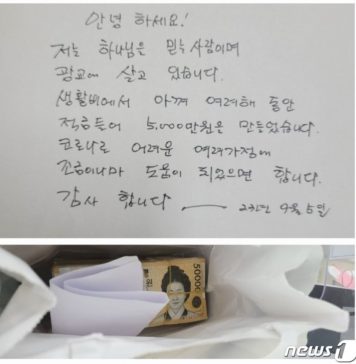 안녕 하세요!
저는 하나님은 믿는 사람이며
광교에 살고 있습니다.
생활비에서 아껴 여러해 동안
적금들어 5,000만원은 만들었습니다.
코로나로 어려운 여러가정에
조금이나마 도움이 되었으면 합니다.
감사 합니다 —— 9월 5일
50000
news1